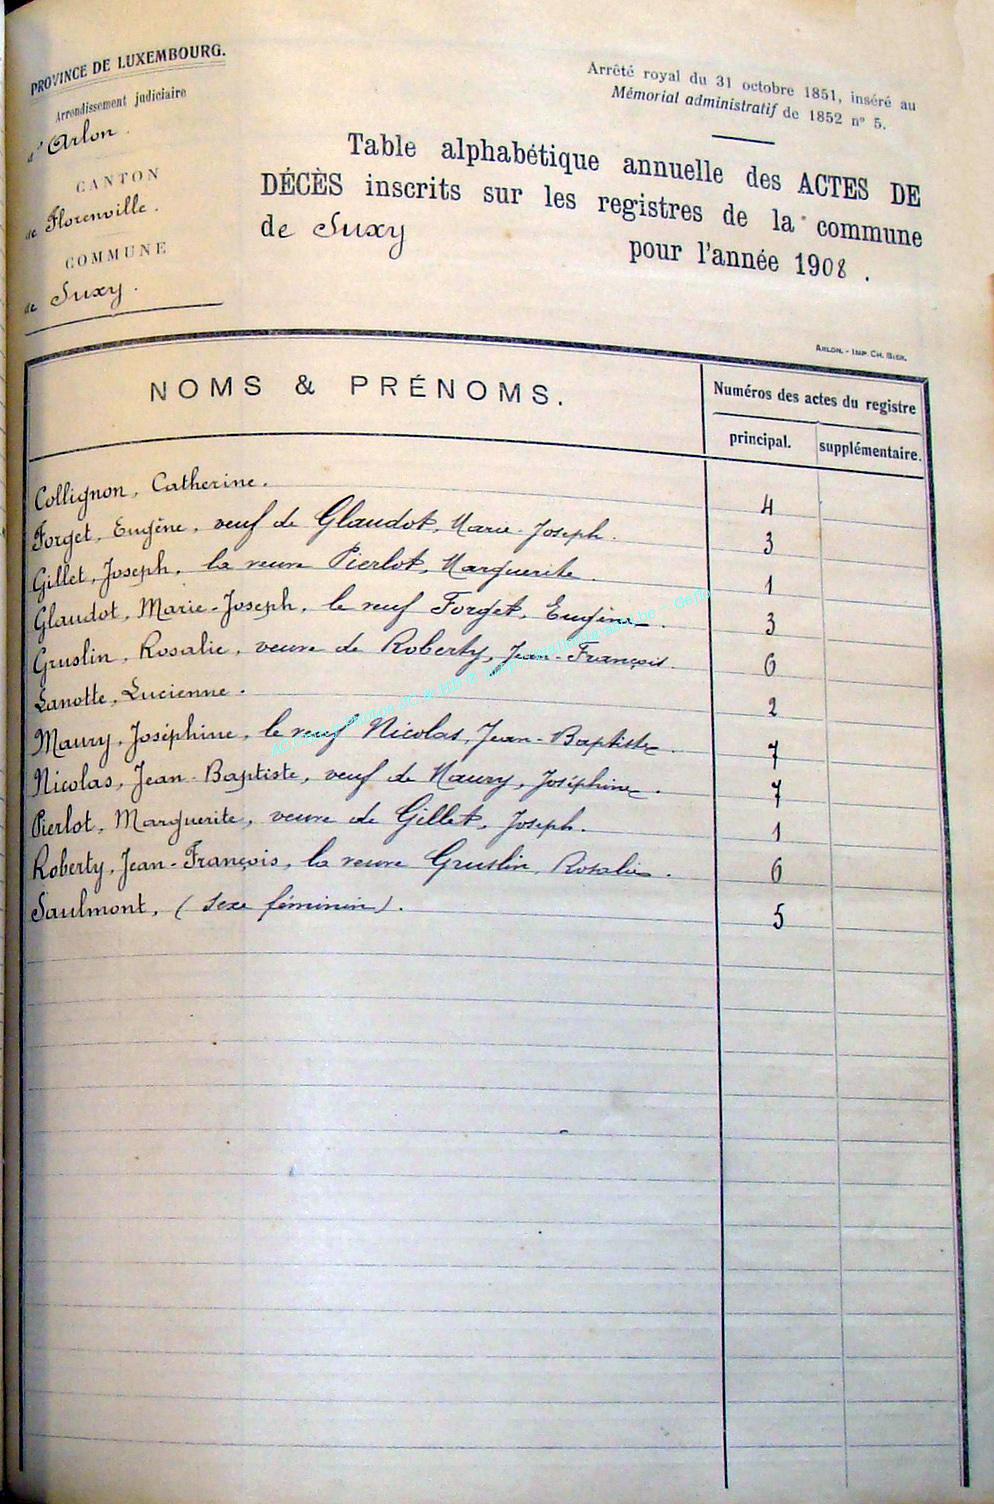 PROVINCE DE LUXEMBOURG.
Arrondissement judiciaire
d'Arlon.
CANTON
de Florenville.
COMMUNE
de Suxy.
Arrêté royal du 31 octobre 1851, inséré au
Mémorial administratif de 1852 n° 5.
Table alphabétique annuelle des ACTES DE
DÉCÈS inscrits sur les registres de la commune
de Suxy pour l'année 1908.
ARLON. - IMP. CH. BIER.
NOMS & PRÉNOMS. Numéros des actes du registre
principal. supplémentaire.
Collignon, Catherine. 4
Forget, Eugène, veuf de Glaudot, Marie-Joseph. 3
Gillet, Joseph, la veuve Pierlot, Marguerite. 1
Glaudot, Marie-Joseph, le veuf Forget, Eugène. 3
Gruslin, Rosalie, veuve de Roberty, Jean-François. 6
Lanotte, Lucienne. 2
Maury, Joséphine, le veuf Nicolas, Jean-Baptiste. 7
Nicolas, Jean-Baptiste, veuf de Maury, Joséphine. 7
Pierlot, Marguerite, veuve de Gillet, Joseph. 1
Roberty, Jean-François, la veuve Gruslin, Rosalie. 6
Saulmont, (sexe féminin). 5